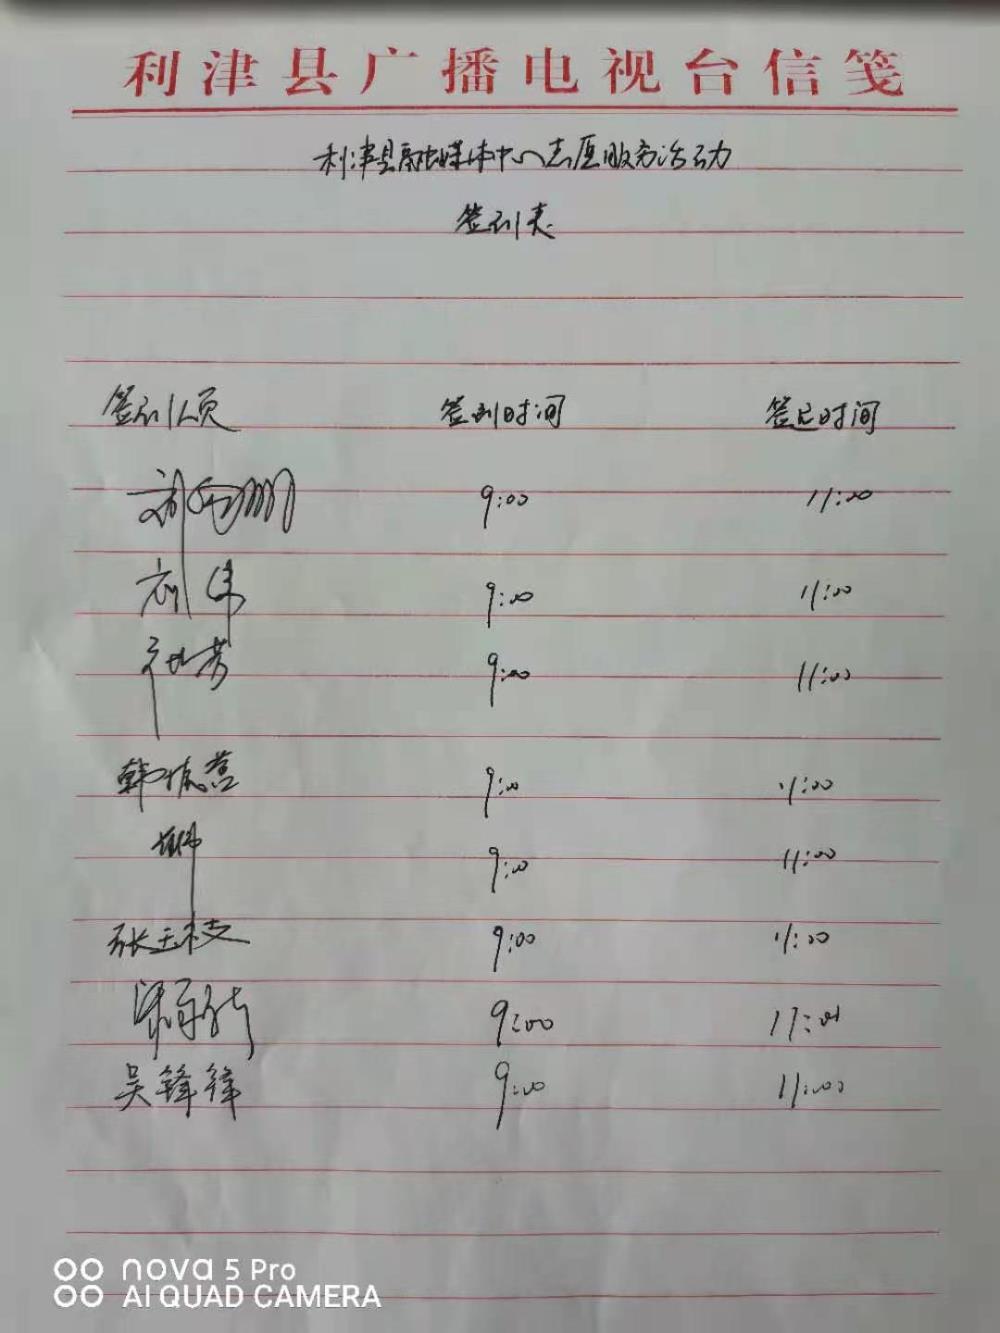 利津县广播电视台信笺
利津县融媒体中心志愿服务活动
签到表
签到人员 签到时间 签退时间
9:00 11:00
刘伟 9:00 11:00
9:00 11:00
韩 9:00 11:00
9:00 11:00
张玉枝 9:00 11:00
9:00 11:00
吴锋锋 9:00 11:00
nova 5 Pro
AI QUAD CAMERA